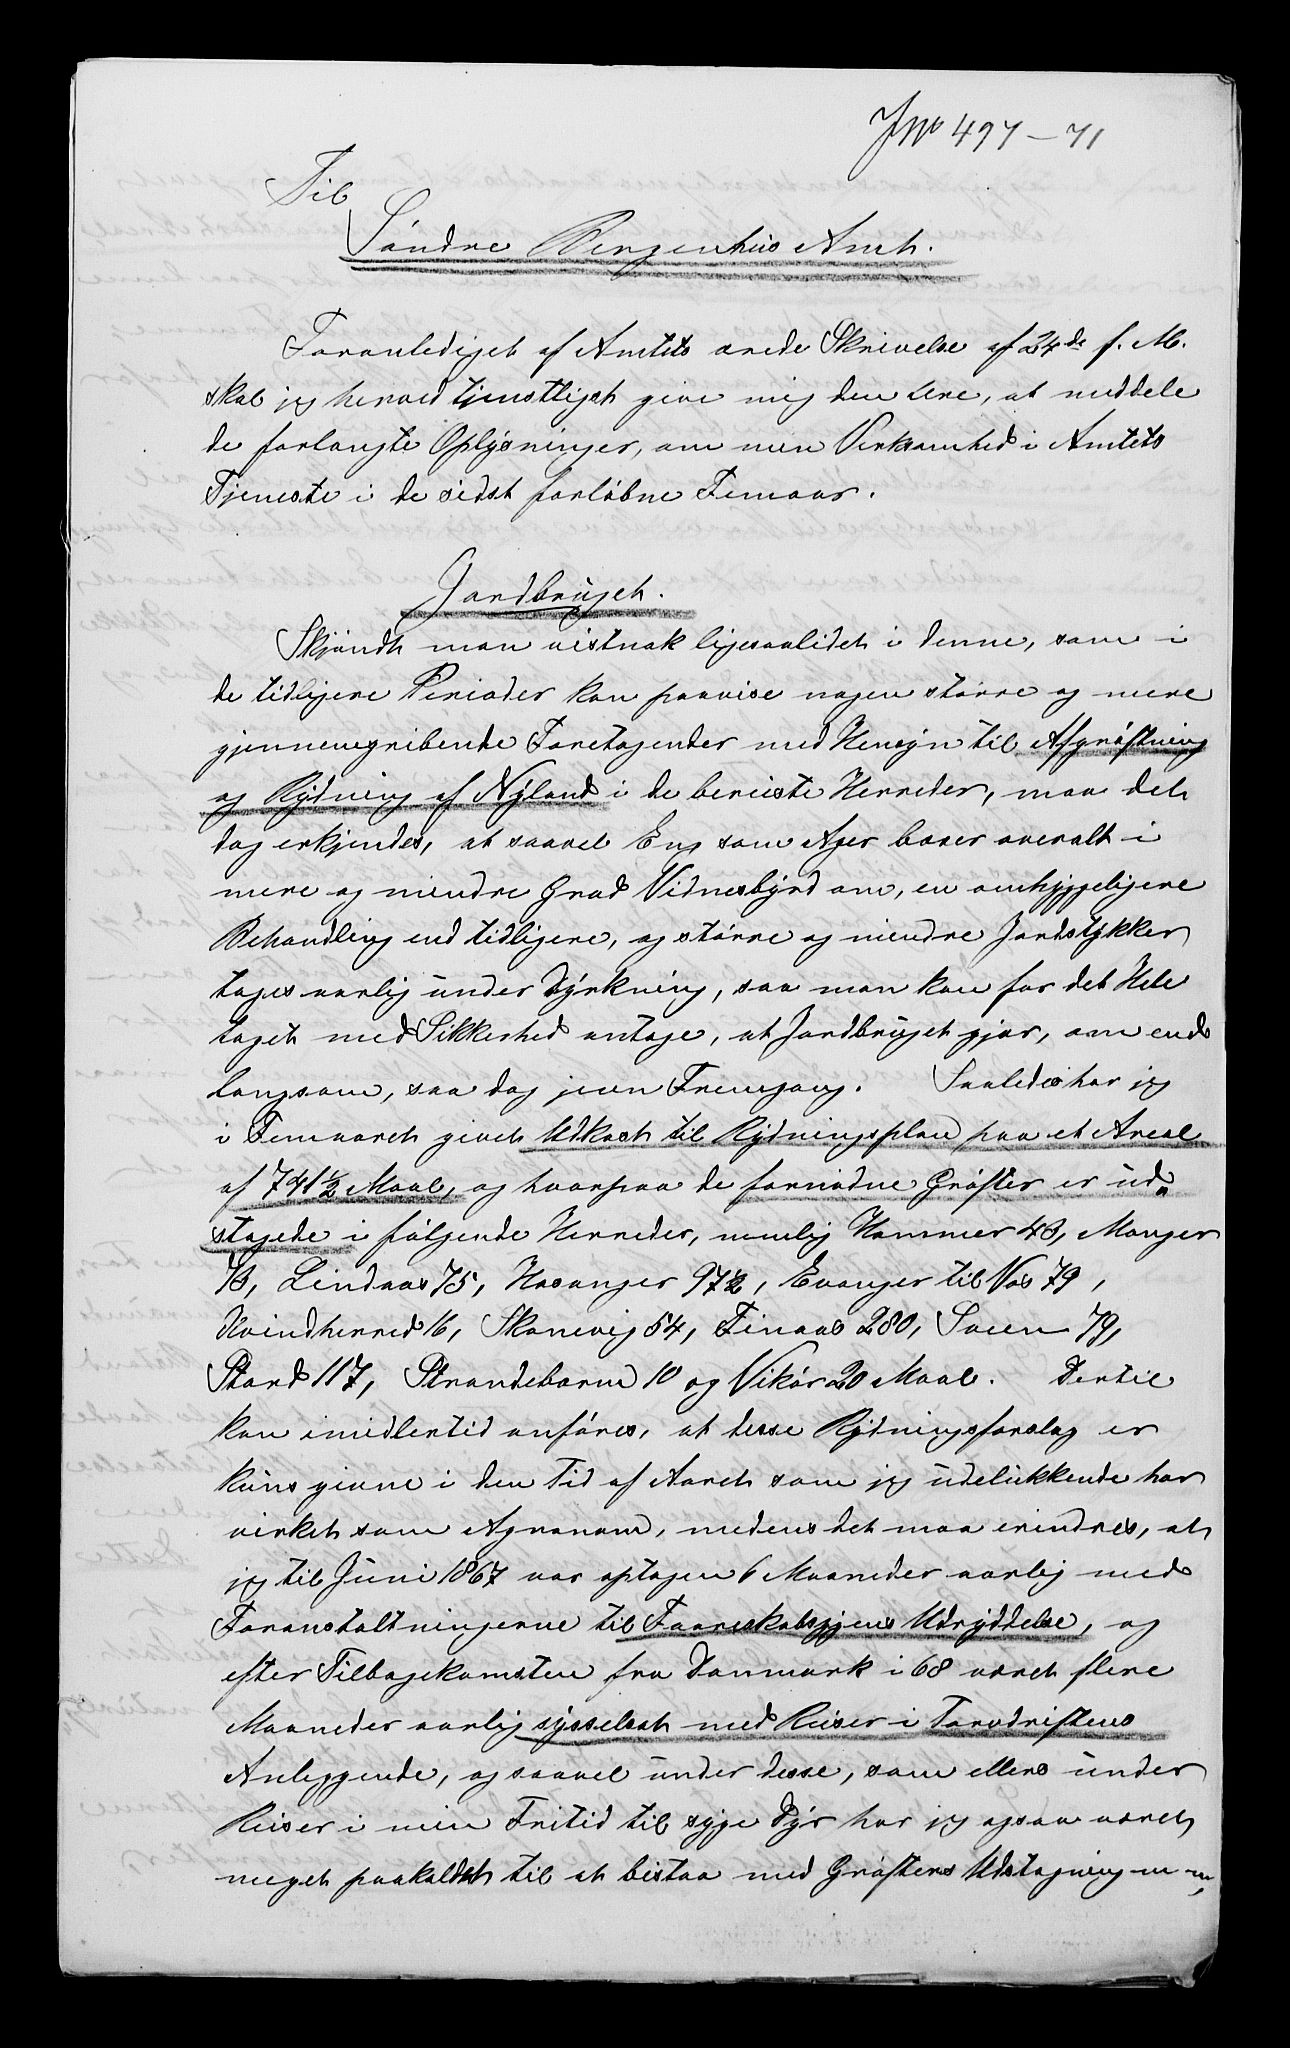 JNo 497-71
Til
Söndre Bergenhus Amt.
Foranlediget af Amtets ærede Skrivelse af 24de f. M.
skal jeg herved tjenstligst give mig den Ære, at meddele
de forlangte Oplysninger, om min Virksomhed i Amtets
Tjeneste i de sidst forløbne Femaar.
Jordbruget.
Skjøndt man vistnok ligesaalidet i denne, som i
de tidligere Perioder kan paavise nogen større og mere
gjennemgribende Foretagender med Hensyn til Afgrøftning
og Rydning af Nyland i de bereiste Herreder, maa det
dog erkjendes, at saavel Eng som Ager bærer overalt i
mere og mindre Grad Vidnesbyrd om, en omhyggeligere
Behandling end tidligere, og større og mindre Jordstykker
tages aarlig under Dyrkning, saa man kan for det Hele
taget med Sikkerhed antage, at Jordbruget gjør, om end
langsom, saa dog jevn Fremgang. Saaledes har jeg
i Femaaret givet Udkast til Rydningsplan paa et Areal
af 741½ Maal, og hvorpaa de fornødne Grøfter er ud„
stagede i følgende Herreder, nemlig Hammer 43, Manger
73, Lindaas 75, Hosanger 97½, Evanger til Vos 79,
Kvindherred 16, Skonevig 54, Finaas 280, Sveen 79,
Stord 117, Strandebarm 10 og Vikør 20 Maal. Dertil
kan imidlertid anføres, at disse Rydningsforslag er
kuns givne i den Tid af Aaret som jeg udelukkende har
virket som Agronom, medens det maa erindres, at
jeg til Juni 1867 var optagen 6 Maaneder aarlig med
Foranstaltningerne til Faareskabsygens Udryddelse, og
efter Tilbagekomsten fra Danmark i 68 været flere
Maaneder aarlig sysselsat med Reiser i Torvdriftens
Anliggende, og saavel under disse, som ellers under
Reiser i min Fritid til syge Dyr har jeg ogsaa været
meget paakaldet til at bistaa med Grøfters Udstagning m m,